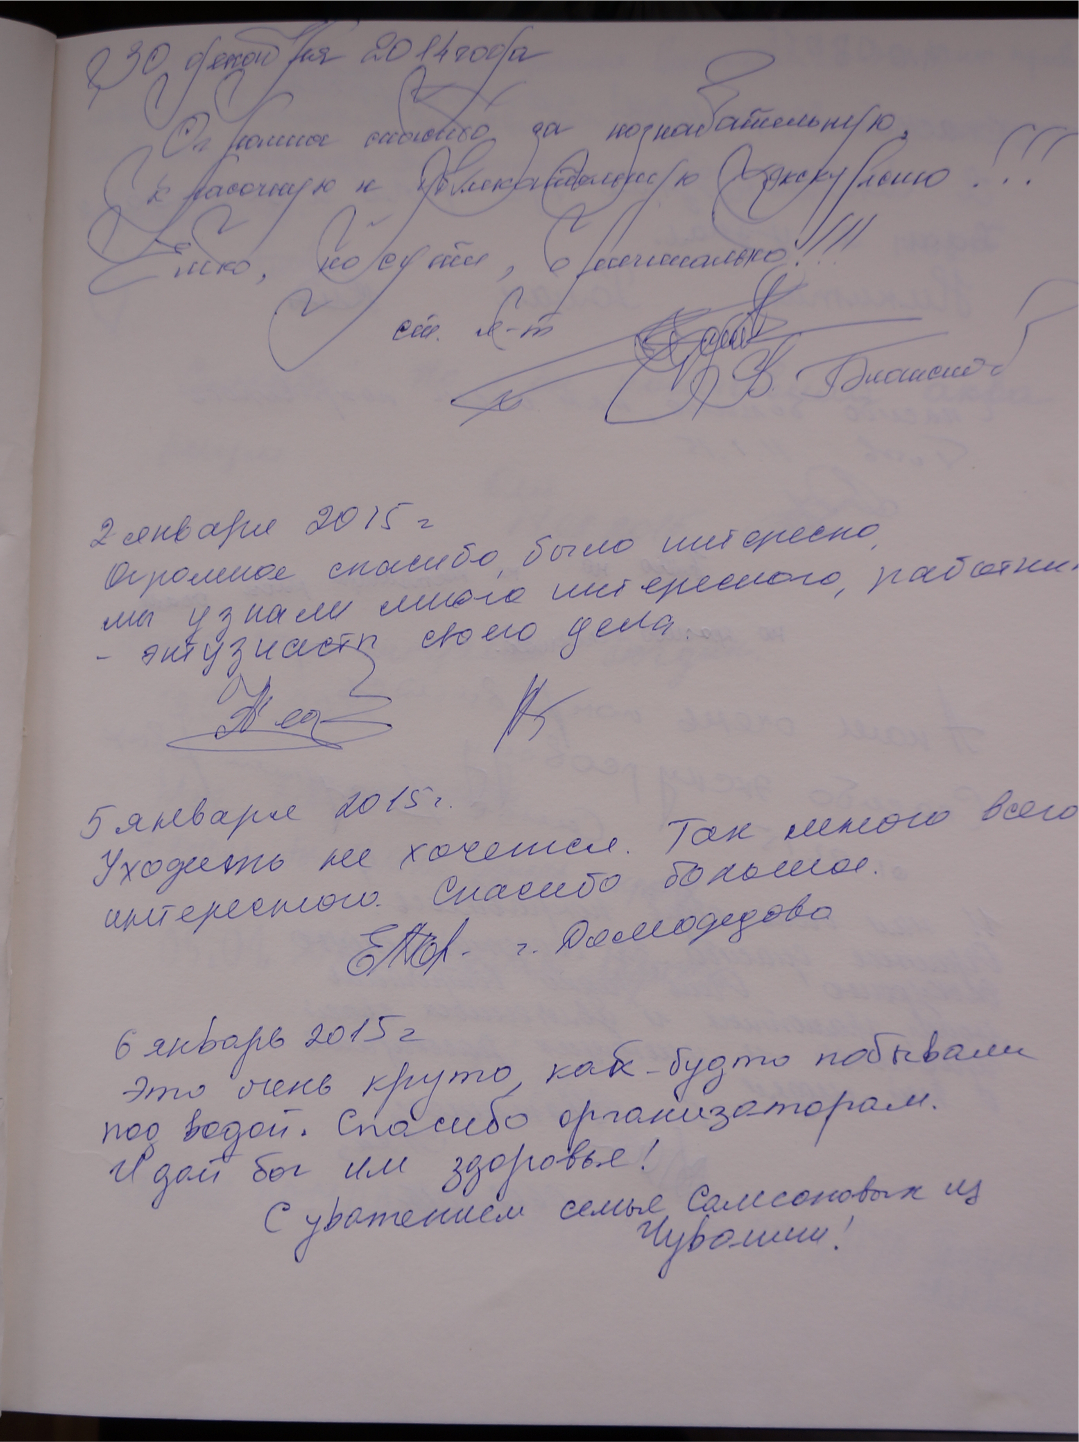 30 декабря 2014 года
Огромное спасибо за познавательную,
красочную и увлекательную экскурсию!!!
Ёмко, по сути, оригинально!!!!
ст. л-т
В.
2 января 2015 г
Огромное спасибо, было интересно,
мы узнали много интересного, работни
- энтузиасты своего дела.
5 января 2015 г.
Уходить не хочется. Так много всего
интересного. Спасибо большое.
г. Домодедово
6 январь 2015 г
Это очень круто, как-будто побывали
под водой. Спасибо организаторам.
И дай бог им здоровья!
С уважением семья Самсоновых из
Чувашии!